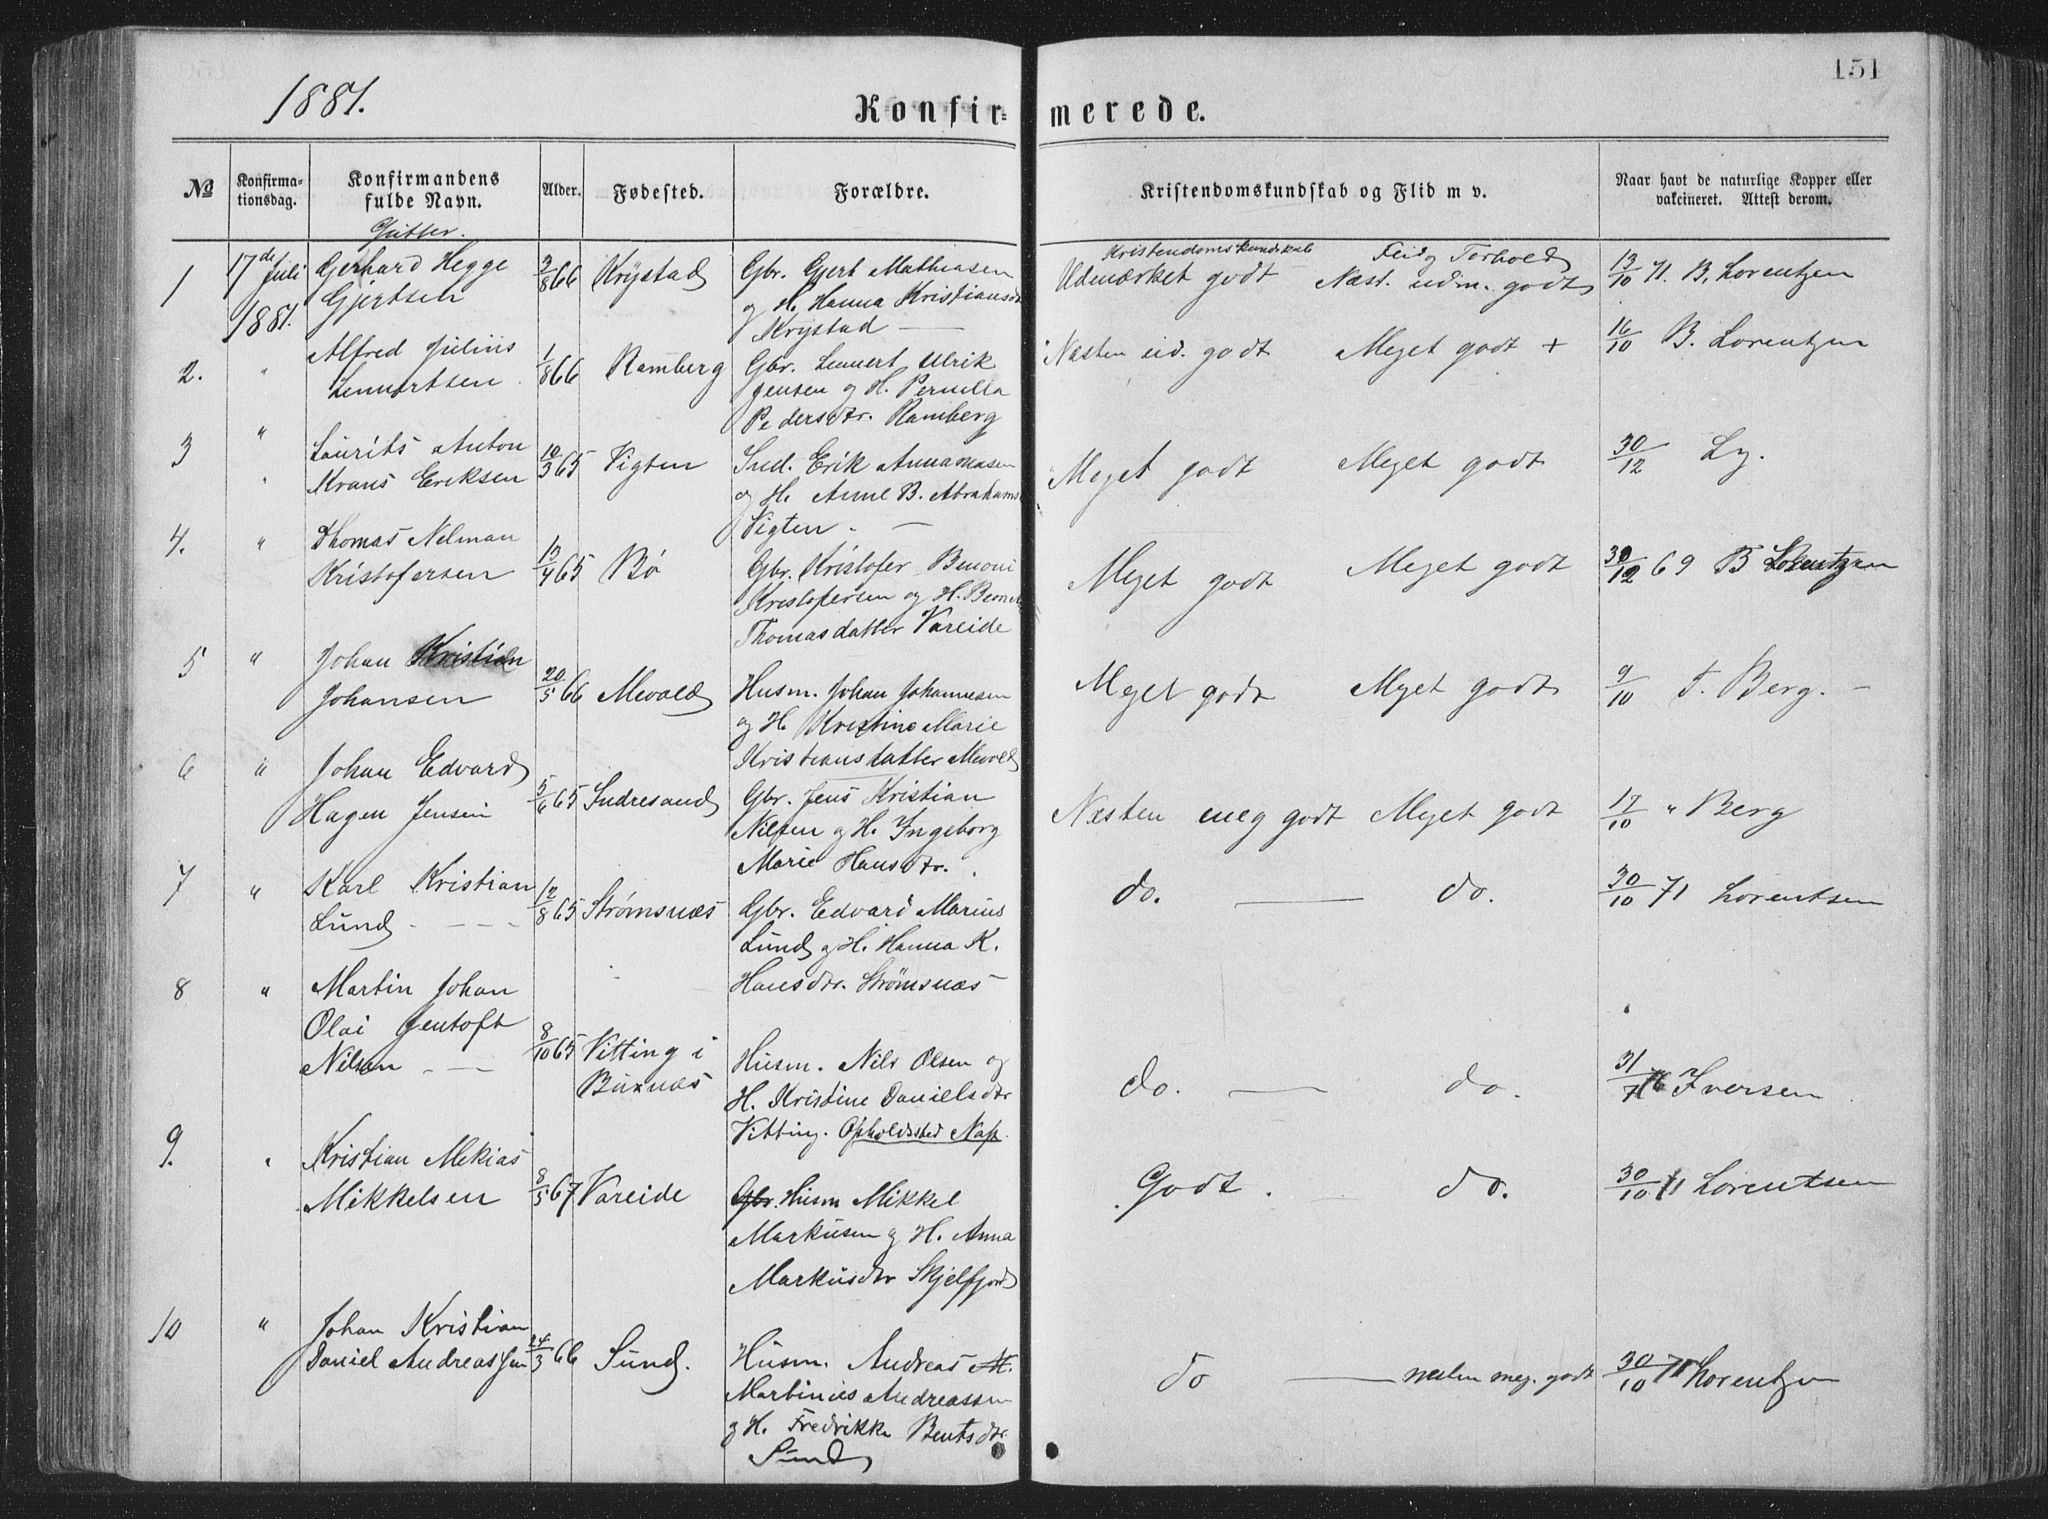 1881.
151
Konfirmerede.
№
Konfirmationsdag.
Konfirmandens fulde Navn.
Alder.
Fødested.
Forældre.
Kristendomskundskab og Flid m v.
Naar havt de naturlige Kopper eller vakcineret. Attest derom.
Gutter.
Kristendomskundskab
1 17de Juli 1881. Gerhard Hegge Gjertsen 2/8 66 Krystad Gbr. Gjert Mathiasen og H. Hanna Kristiansdt Krystad — Udmærket godt Næst. udm. godt 13/10 71. B. Lorentzen
2. " Alfred Julius Lennertsen 1/8 66 Ramberg Gbr. Lennert Ulrik Jensen og H. Pernilla Pedersdtr. Ramberg Næsten ud. godt Meget godt + 16/10 B. Lorentzen
3 " Laurits Anton Krans Eriksen 10/3 65 Vigten Ind. Erik Annanasen og H. Anne B. Abrahams Vigten — Meget godt Meget godt 30/12 Ly.
4. " Thomas Nelman Kristofersen 13/4 65 Bø Gbr. Kristofer Benoni Kristofersen og H. Thomasdatter Vareide Meget godt Meget godt 30/12 69 B Lorentzen
5 " Johan Kristian Johansen 20/5 66 Mevold Husm. Johan Johannesen og H. Kristine Marie Kristiansdatter Mevold Meget godt Meget godt 9/10 T. Berg. —
6 " Johan Edvard Hagen Jensen 5/6 65 Indresand Gbr. Jens Kristian Nilsen og H. Ingeborg Marie Hansdtr. Næsten meg godt Meget godt 17/10 " Berg
7 " Karl Kristian Lund — — — 12/8 65 Strømsnæs Gbr. Edvard Marius Lund og H. Hanna K. Hansdtr. Strømsnæs do. — do. 30/10 71 Lorentsen
8 " Martin Johan Olai Jentoft Nilsen — — 8/10 65 Vitting i Buxnæs Husm. Nils Olsen og H. Kristine Danielsdtr Vitting. Opholdssted Nap. do. — do. 31/7 Iversen
9. " Kristian Mekias Mikkelsen 8/5 67 Vareide Gbr. Husm Mikkel Markusen og H. Anna Markusdtr Skjelfjord Godt. do. 30/10 71 Lorentsen
10 " Johan Kristian Daniel Andreassen 24/3 66 Sund. Husm. Andreas M. Martinius Andreassen og H. Fredrikke Bentsdtr Sund do — næsten meg. godt 30/10 71 Lorentzen